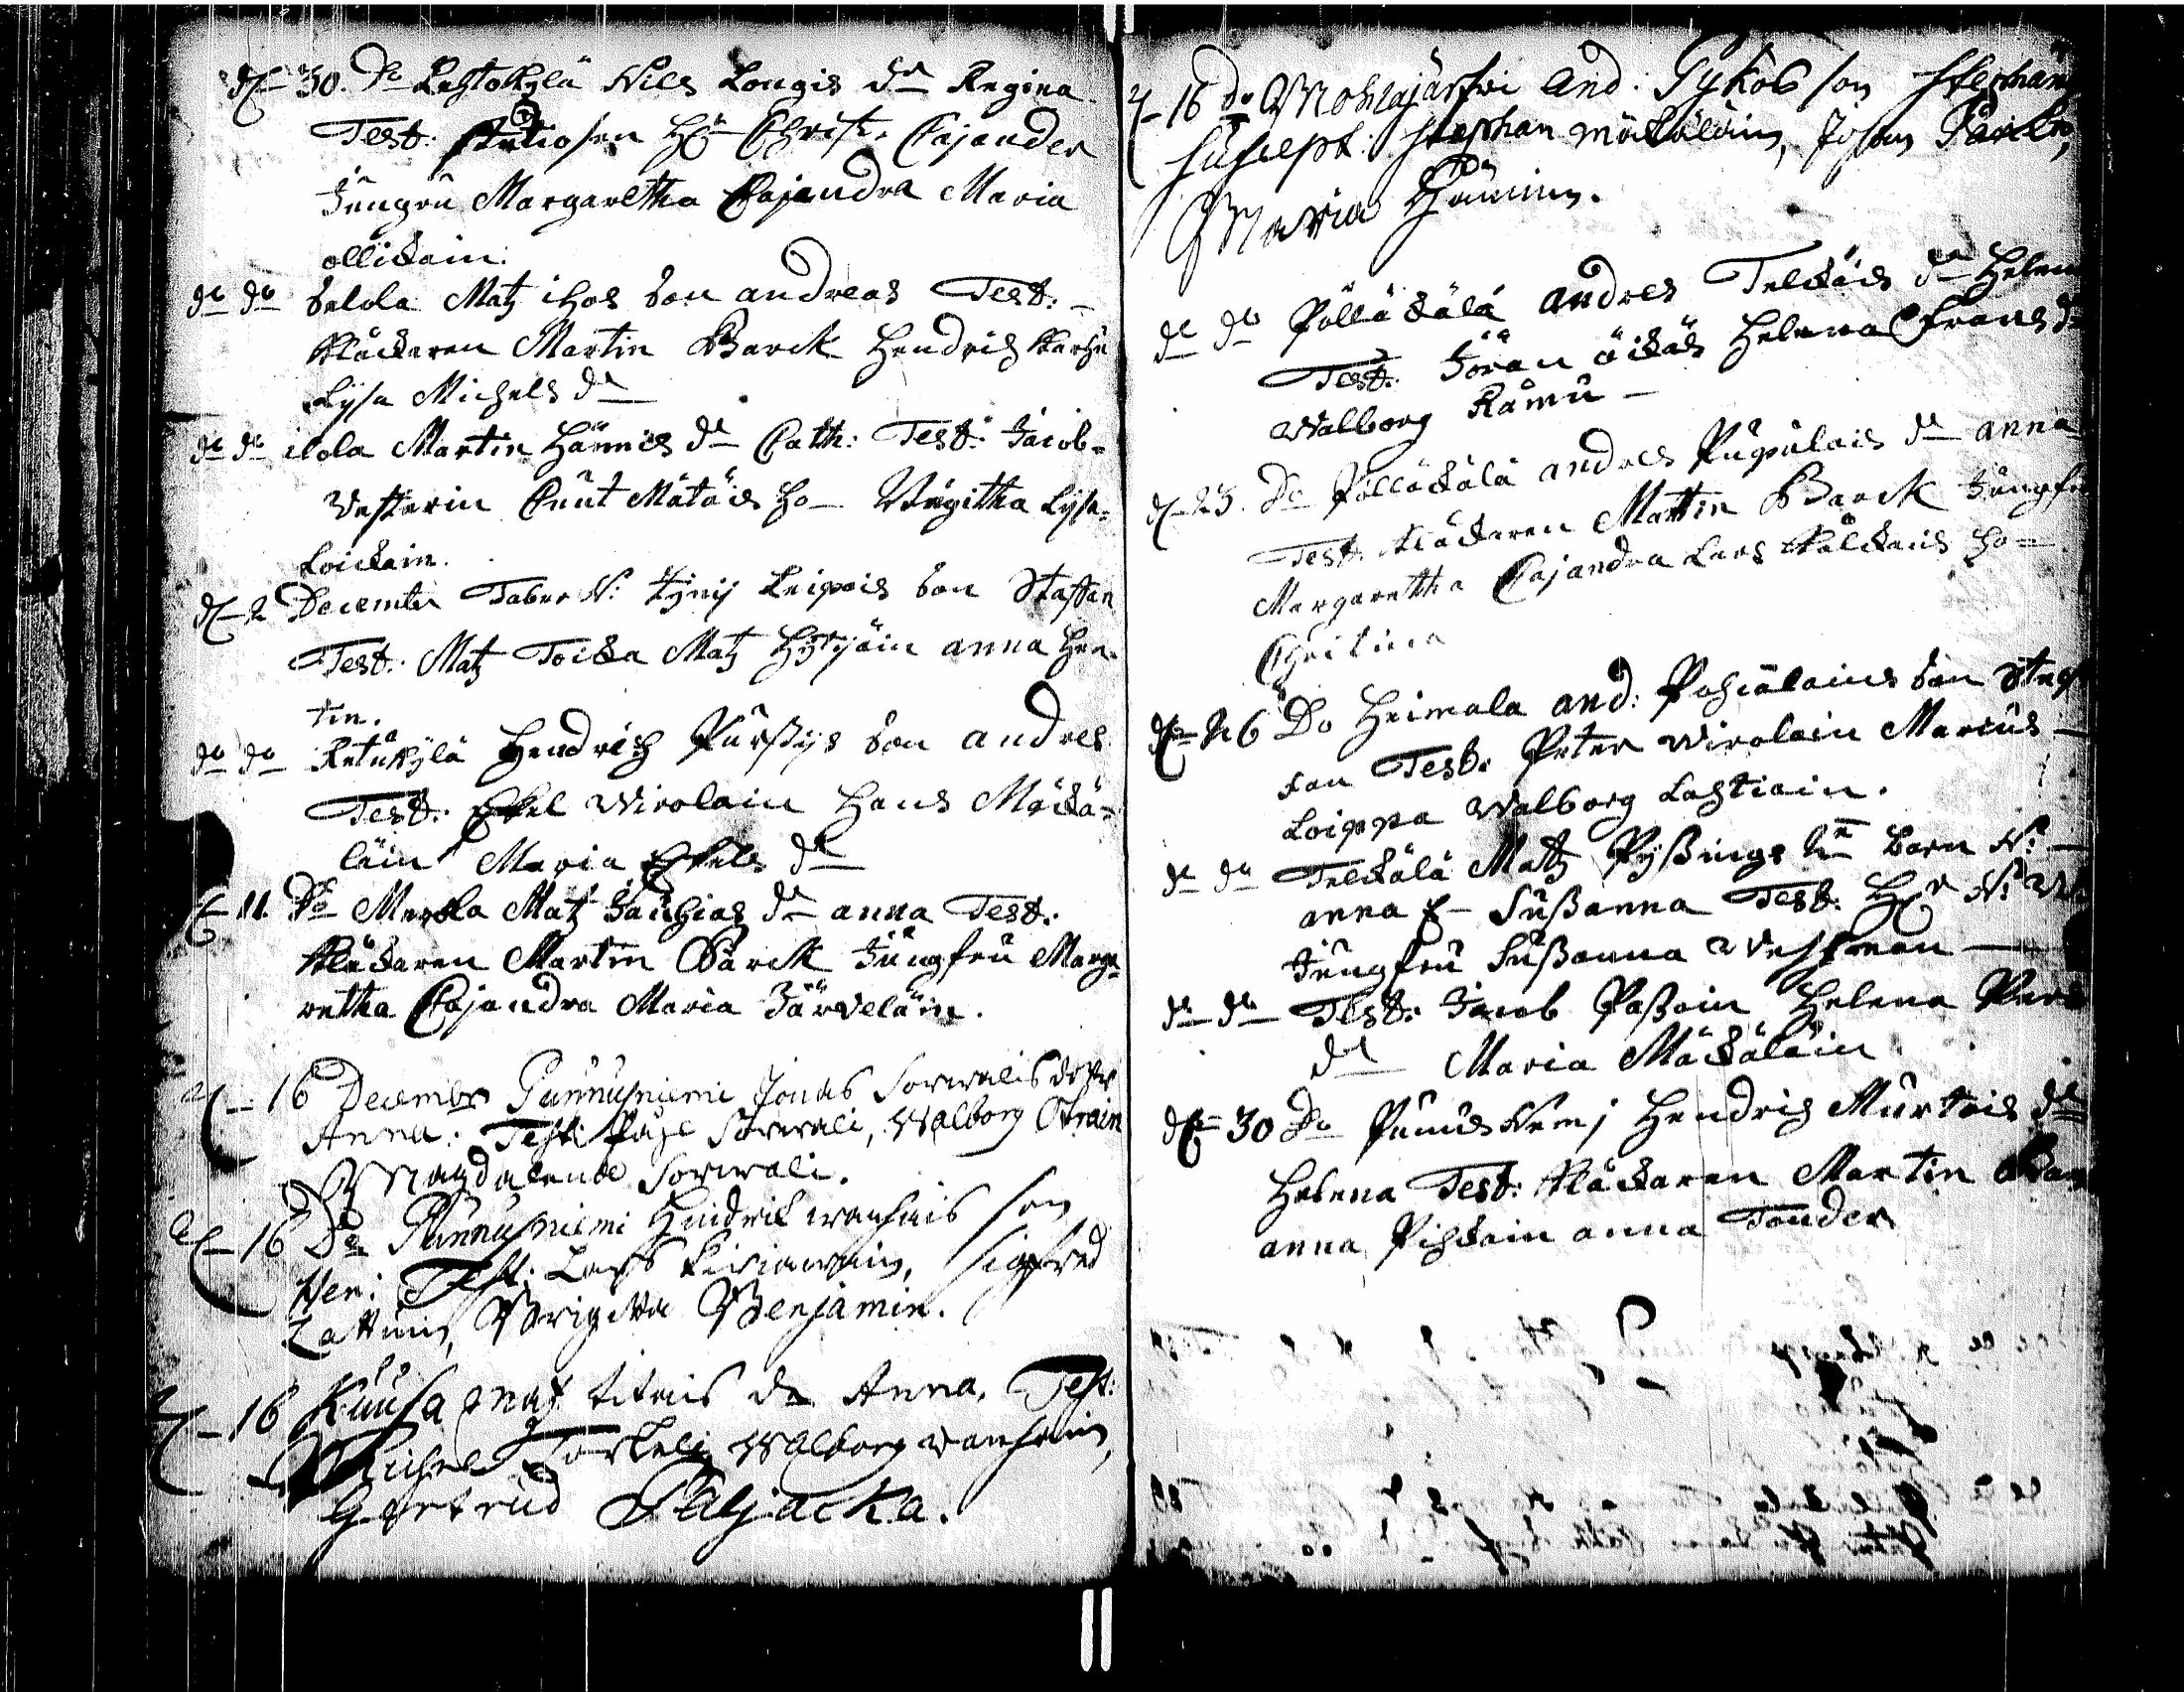 d 30. Do Lestokylä Nils Longis dr Regina
Test: Studiosen Hr Christ. Cajander
Jungru Margaretha Cajandra Maria
ollikain:
do do Salola Matz ihos son andreas Test:
Kläckaren Martin Barck Hendrich Karhu
Lysa Michels dr
do do ilola Martin Hännis dr Cath: Test: Jacob
Vesterin Cnut Mätäis ho Birgitha Lysa
Loickain.
d 2 December Taber N: Tynij Leipois son Staffan
Test: Matz Toicka Matz Hytijäin anna Hen-
tin.
do do Retukylä Hendrich Purssys son andres
Test: Eskel Wirolain Hans Mäckä-
läin Maria Eskels dr
d 11. Do Merkla Matz Jauhias dr anna Test:
Kläckaren Martin Barck Jungfru Marga-
retha Cajandra Maria Järveläin.
16 December Punnusniemi Jonas Sorvalis doter
Anna. Test: Påhl Sorvali, Walborg
Magdalena Sorvali.
16 Do Punnusniemi Hindrik wanhais son
Hen: Test: Lars Kiriawain, Sigfred
Lattuin, Brigitta Benjamin.
16 Kuusa Mat titois dr Anna. Test:
Michel Torkeli Walborg wanhain,
Gertrud Paljacka.
16 do Mohlajärfwi And: Pykös son Stephan
Suscept: Stephan Mäckäläin, Johan
Maria Häninn.
do do Pölläckälä andres Telckäis dr Helena
Test: Jöran öickäs Helena Frans dr
Walborg Rämu
d 23. Do Pölläckälä andres Pupulais dr anna
Test: Kläckaren Martin Barck Jungfru
Margaretha Cajandra Lars Kålckais ho
Christina
d 26 Do Heimala and: Pohiälains son Stef
fan Test: Peter Wirolain Marcus
Loippa Walborg Lastiain.
do do Telckälä Matz Pyssings 2n barn N:
anna & Sussanna Test: Hr N:
Jungfru Sussanna Westman
do do Test: Jacob Passain Helena Pers
dr Maria Mäckäläin
d 30 Do Punusnemj Hendrich Murtois dr
Helena Test: Kläckaren Martin Bar
anna Pihckain anna Tonder